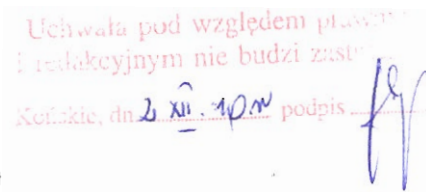 Uchwała pod względem
i redakcyjnym nie budzi
Końskie, dn. 2 XII. podpis